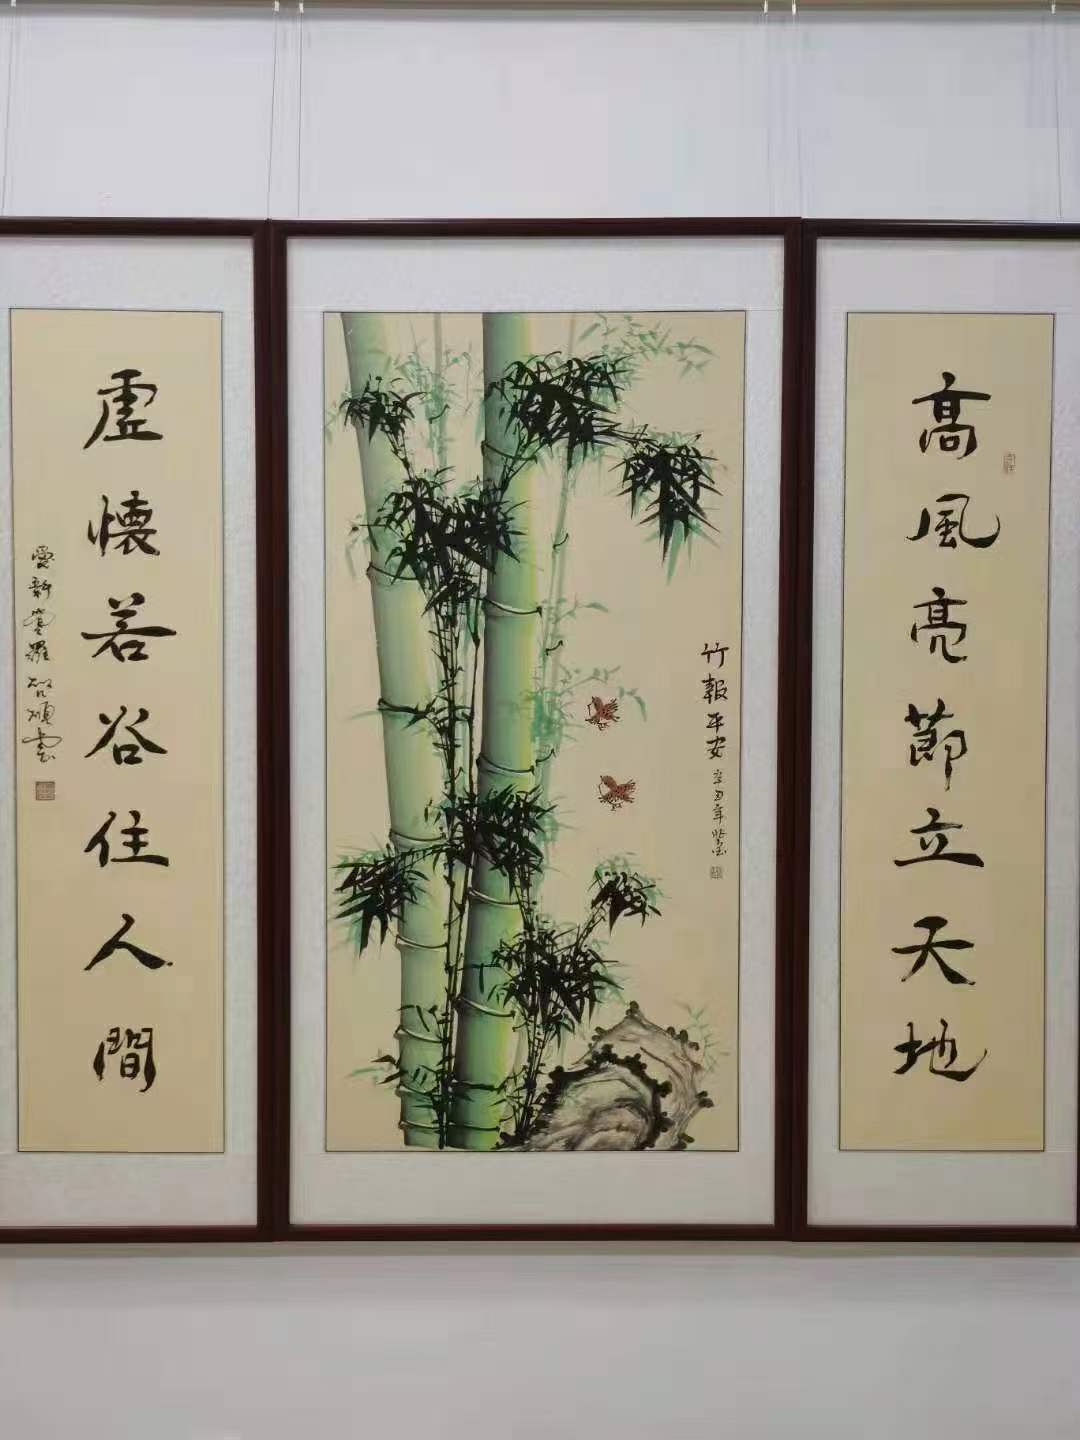 髙風亮節立天地
竹報平安
辛丑年
虛懷若谷住人間
愛新覺羅